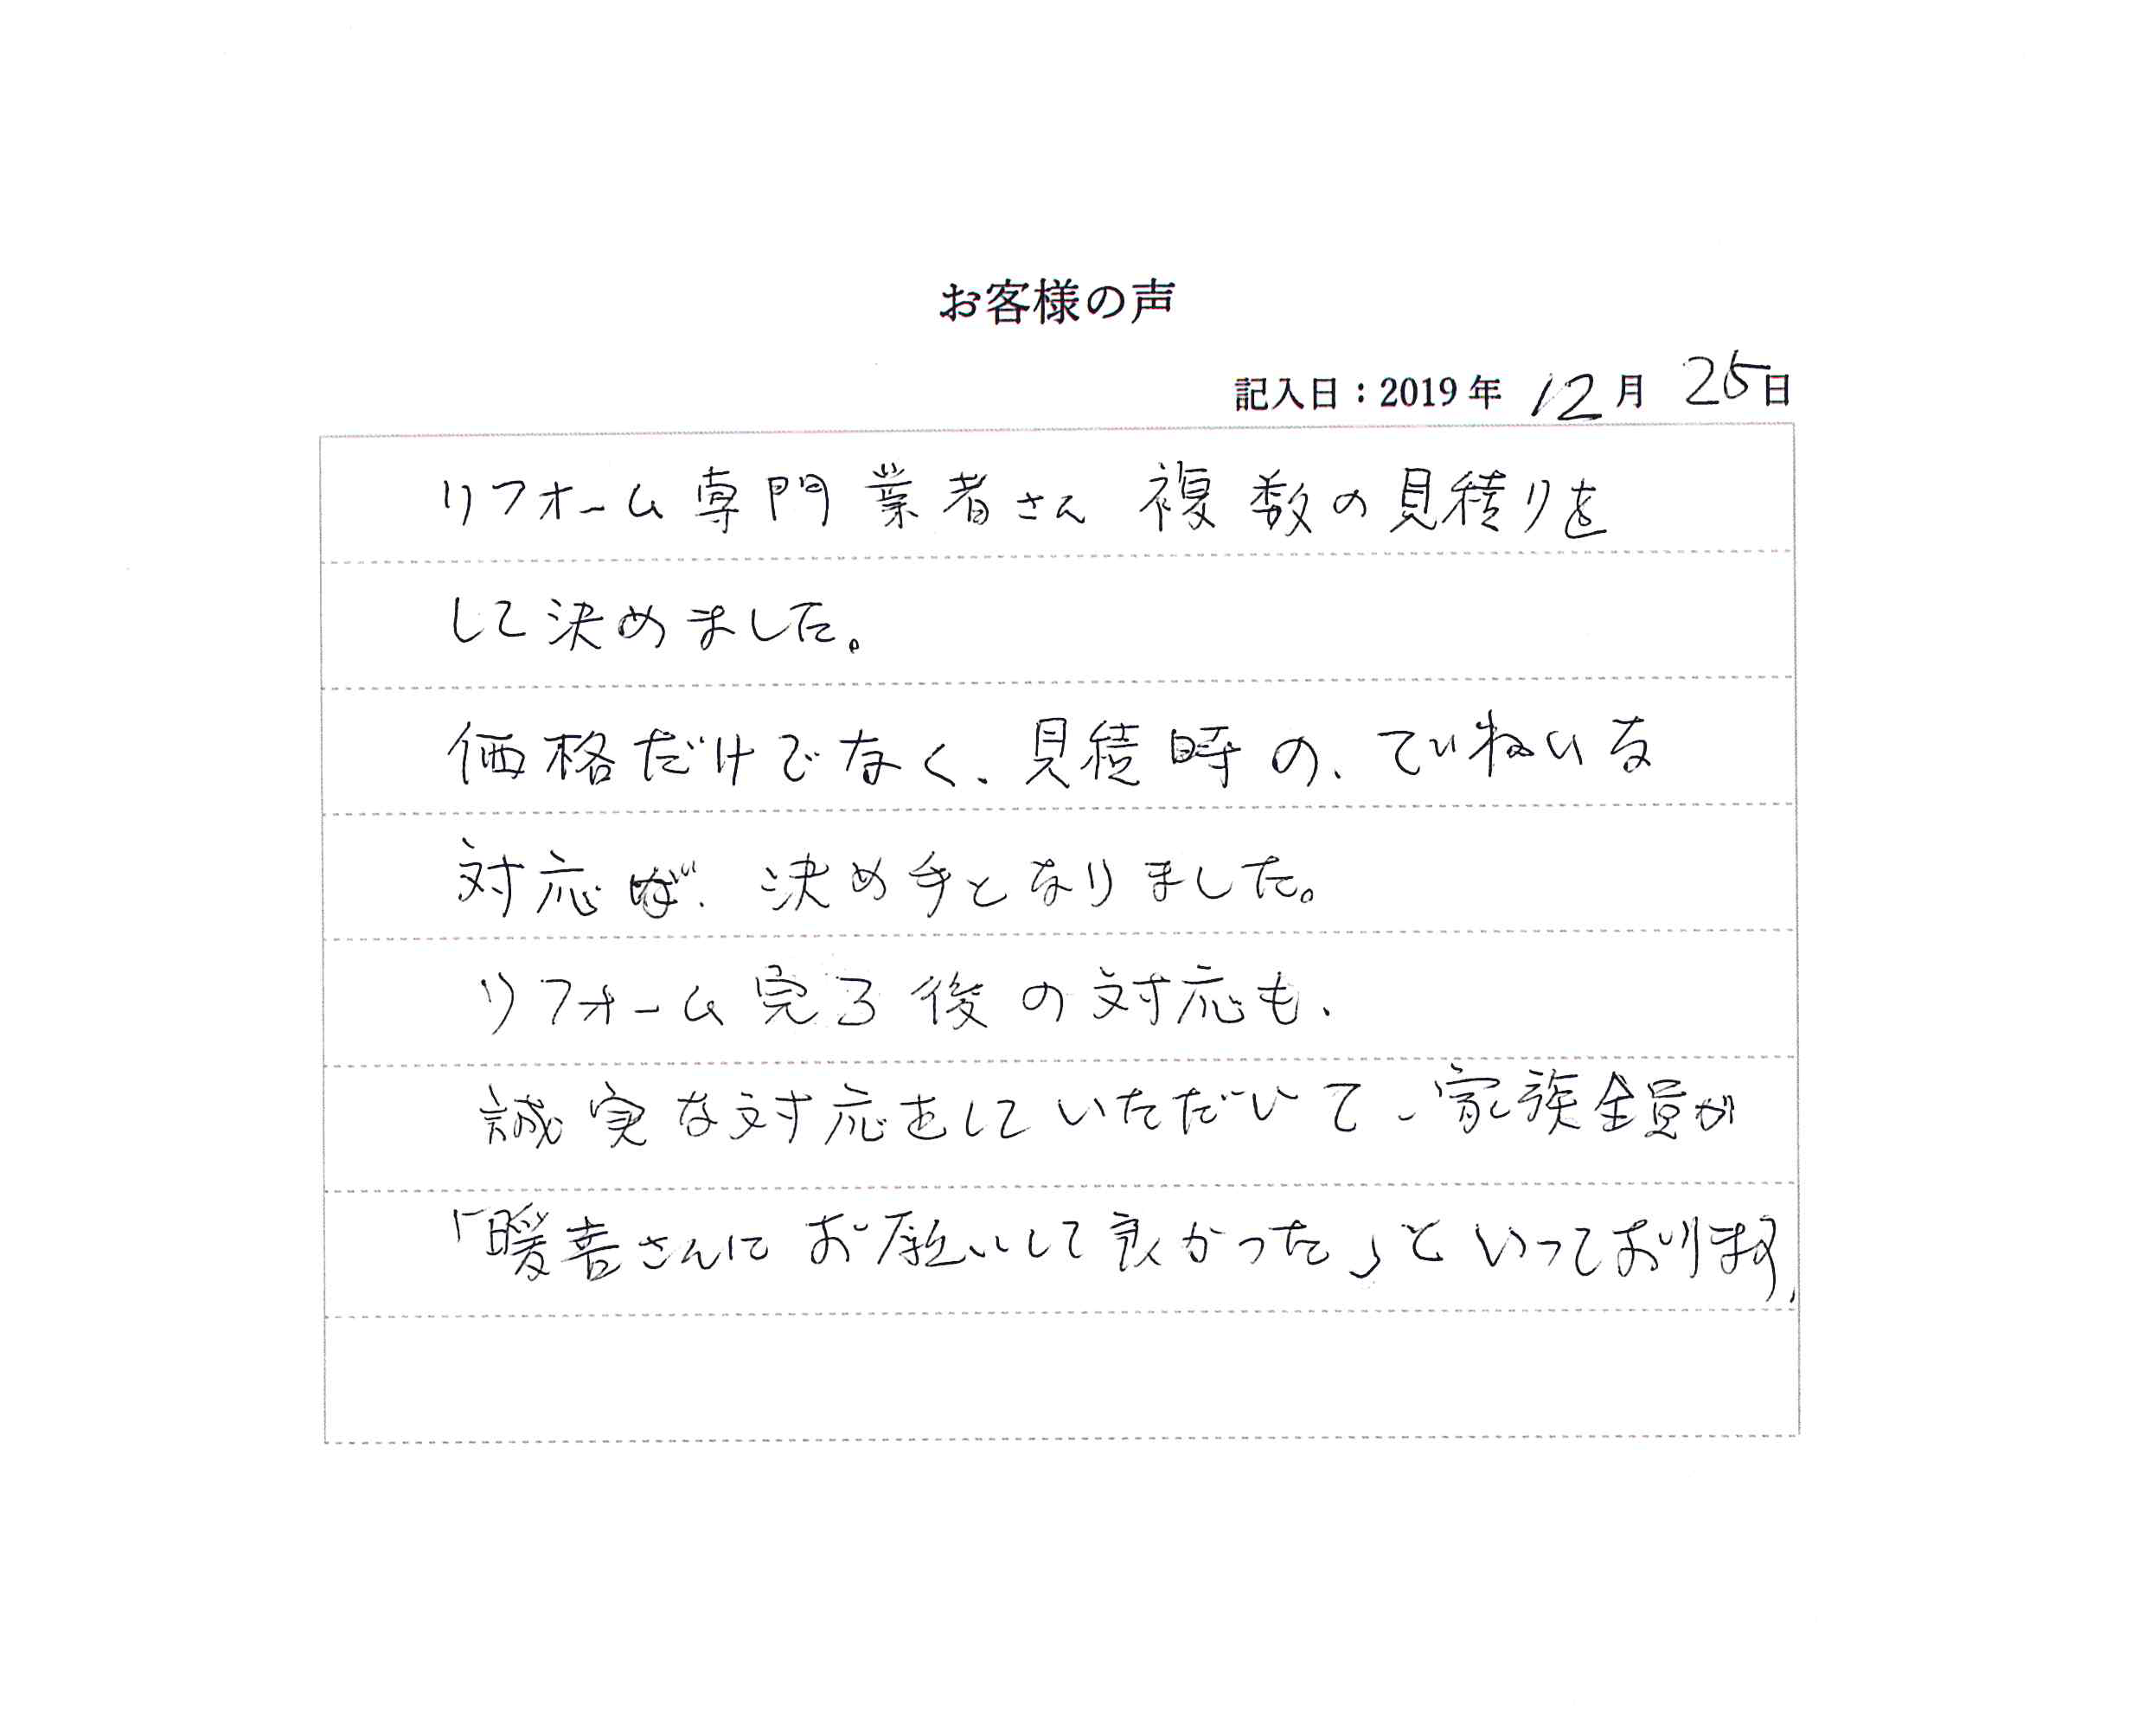 お客様の声
記入日：2019年 12月 25日
リフォーム専門業者さん 複数の見積りを
して決めました。
価格だけでなく、見積時の、ていねいな
対応が、決め手となりました。
リフォーム完了後の対応も、
誠実な対応をしていただいて、家族全員が
「暖喜さんにお願いして良かった」といっております。